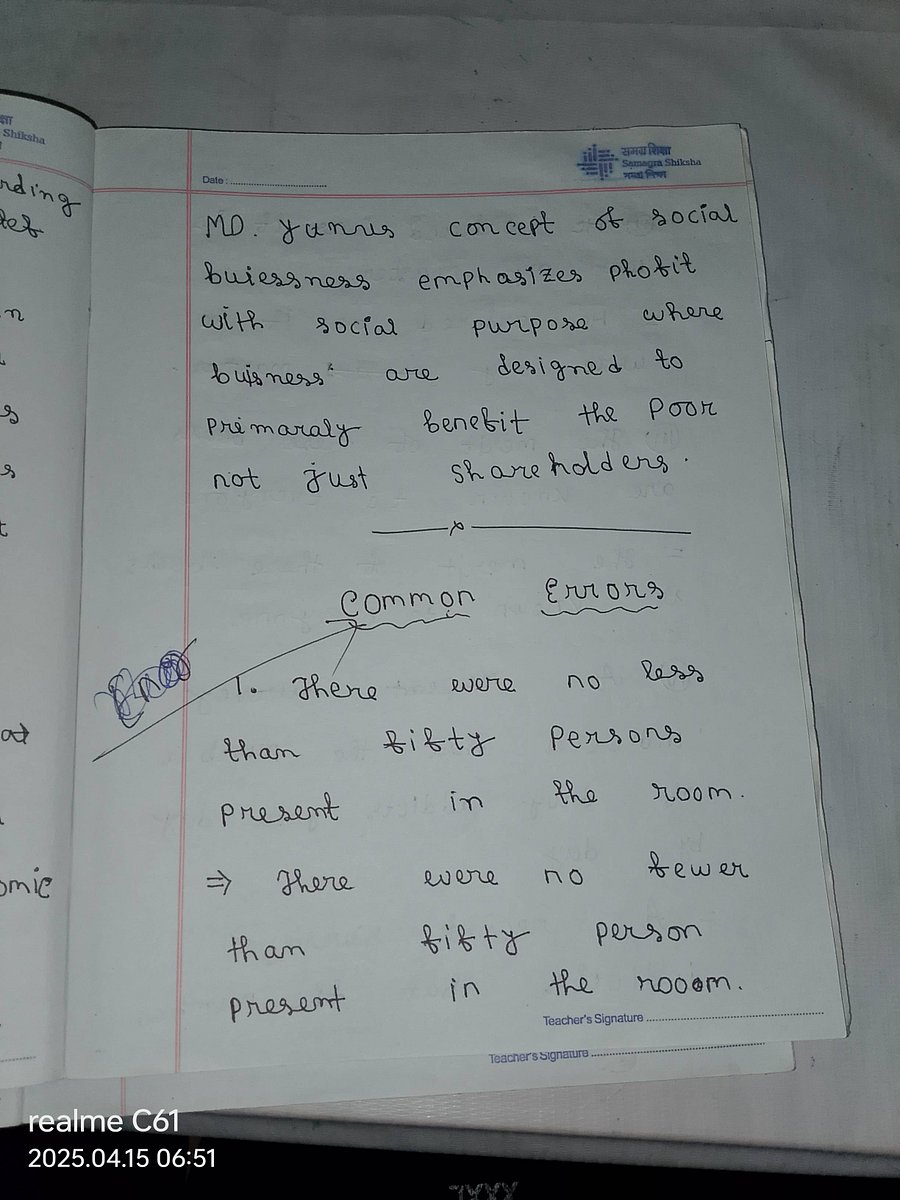 Shiksha
rding
n
s
s
t
at
omic
समग्र शिक्षा
Samagra Shiksha
Date :
MD. Yunus concept of social
buiessness emphasizes phofit
with social purpose where
buisness are designed to
primaraly benefit the Poor
not just shareholders.
Common Errors
1. There were no less
than fifty persons
present in the room.
⇒ There were no fewer
than fifty person
present in the rooom.
Teacher's Signature
Teacher's Signature
realme C61
2025.04.15 06:51